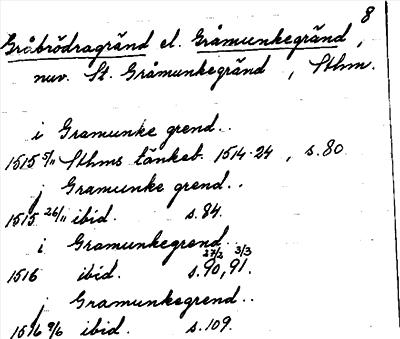 8
Gråbrödragränd el. Gråmunkegränd,
nuv. St. Gråmunkegränd, Sthm.
i Gramunke grend..
1515 5/11 Sthms tänkeb. 1514-24, s.80
i Gramunke grend..
1515 26/11 ibid. s.84.
i Gramunkegrend..
27/2 3/3
1516 ibid. s.90, 91.
i Gramunkegrend..
1516 9/6 ibid. s.109.